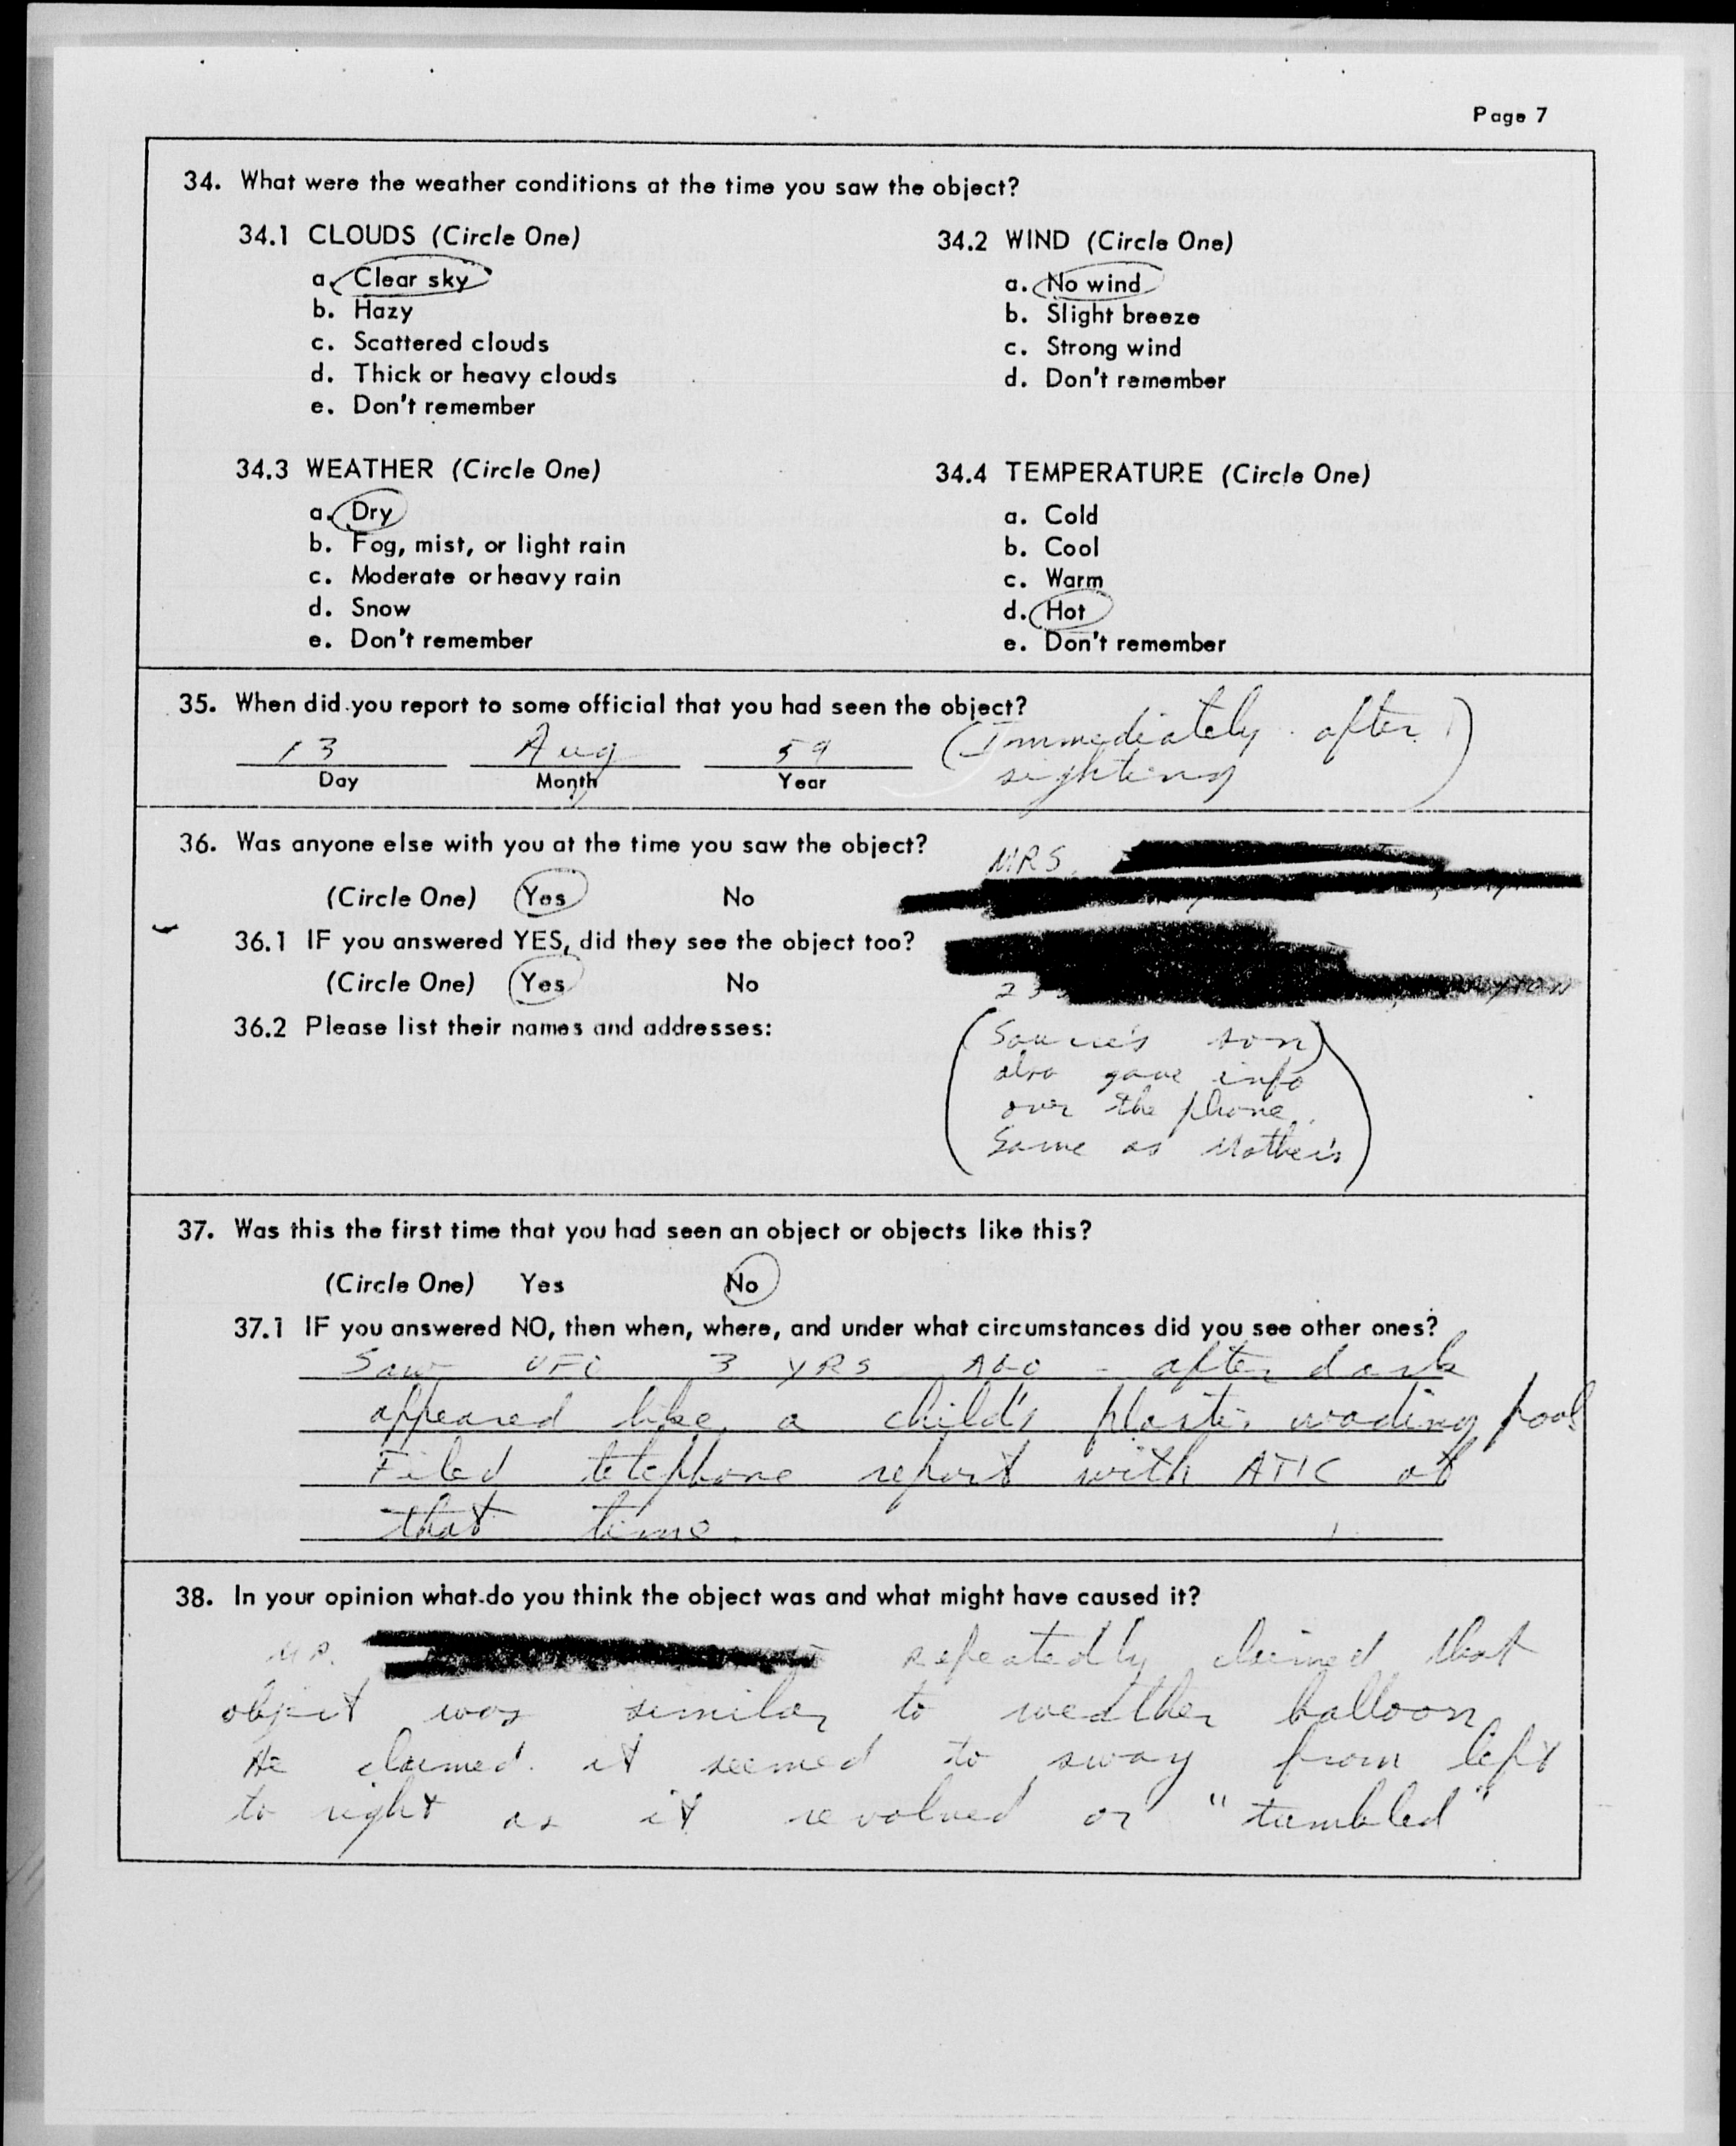 Page 7
34. What were the weather conditions at the time you saw the object?
34.1 CLOUDS (Circle One)
a. Clear sky
b. Hazy
c. Scattered clouds
d. Thick or heavy clouds
e. Don't remember
34.2 WIND (Circle One)
a. No wind
b. Slight breeze
c. Strong wind
d. Don't remember
34.3 WEATHER (Circle One)
a. Dry
b. Fog, mist, or light rain
c. Moderate or heavy rain
d. Snow
e. Don't remember
34.4 TEMPERATURE (Circle One)
a. Cold
b. Cool
c. Warm
d. Hot
e. Don't remember
35. When did you report to some official that you had seen the object?
13 Aug 59
Day Month Year
(Immediately after
sighting)
36. Was anyone else with you at the time you saw the object?
(Circle One) Yes No
36.1 IF you answered YES, did they see the object too?
(Circle One) Yes No
36.2 Please list their names and addresses:
MRS.
(Source's son)
also gave info
over the phone.
Same as Mother's
37. Was this the first time that you had seen an object or objects like this?
(Circle One) Yes No
37.1 IF you answered NO, then when, where, and under what circumstances did you see other ones?
Saw UFO 3 YRS AGO - after dark
appeared like a child's plastic wading pool
Filed telephone report with ATIC at
that time.
38. In your opinion what do you think the object was and what might have caused it?
MR. repeatedly claimed that
object was similar to weather balloon
He claimed it seemed to sway from left
to right as it revolved or "tumbled"